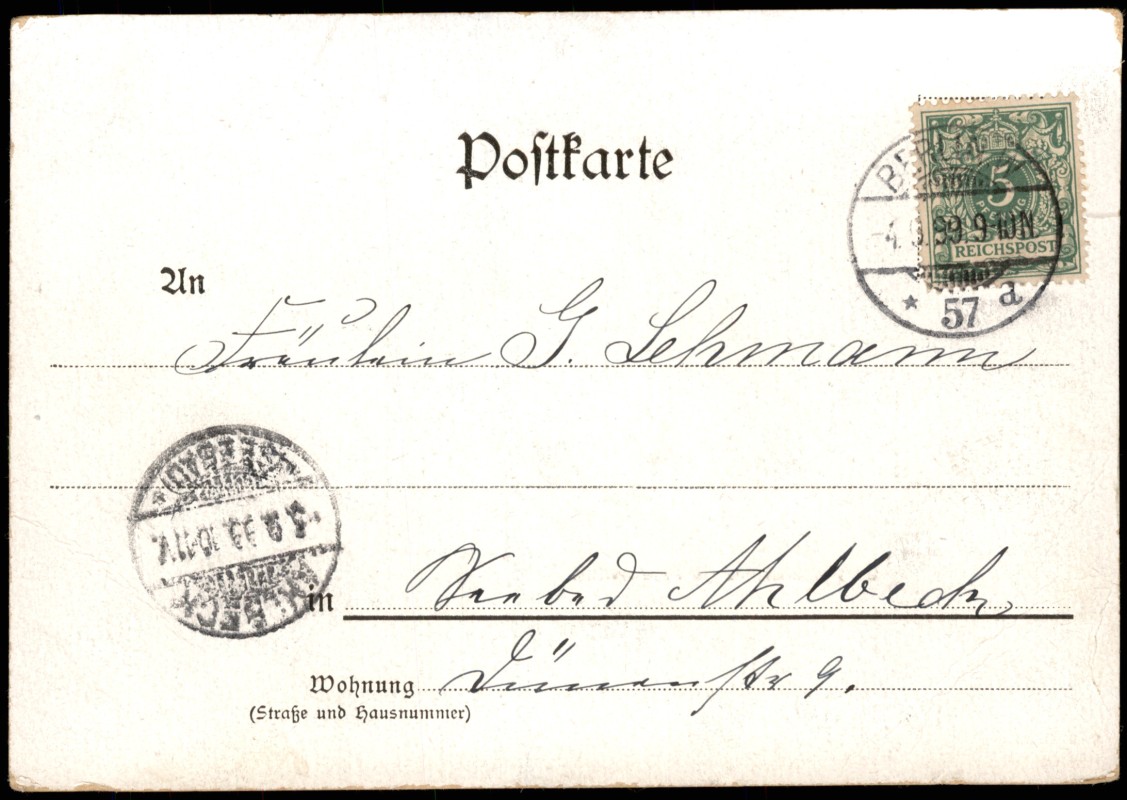 Postkarte
BERLIN W
5
PFENNIG
REICHSPOST
9-10N.
* 57 a
An
Fräulein G. Lehmann
SEEBAD
.99. 10-11V.
AHLBECK
in Seebad Ahlbeck
Wohnung Dünenstr 9.
(Straße und Hausnummer)